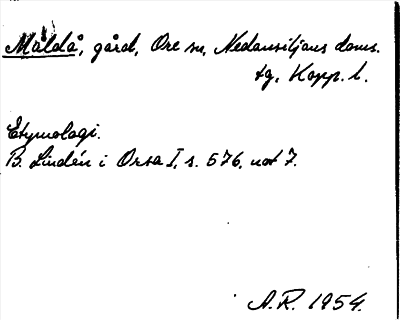 Måldå, gård, Ore sn, Nedansiljans doms.
tg, Kopp. l.
Etymologi.
B. Lindén i Orsa I, s. 576, not 7.
A.R. 1954.